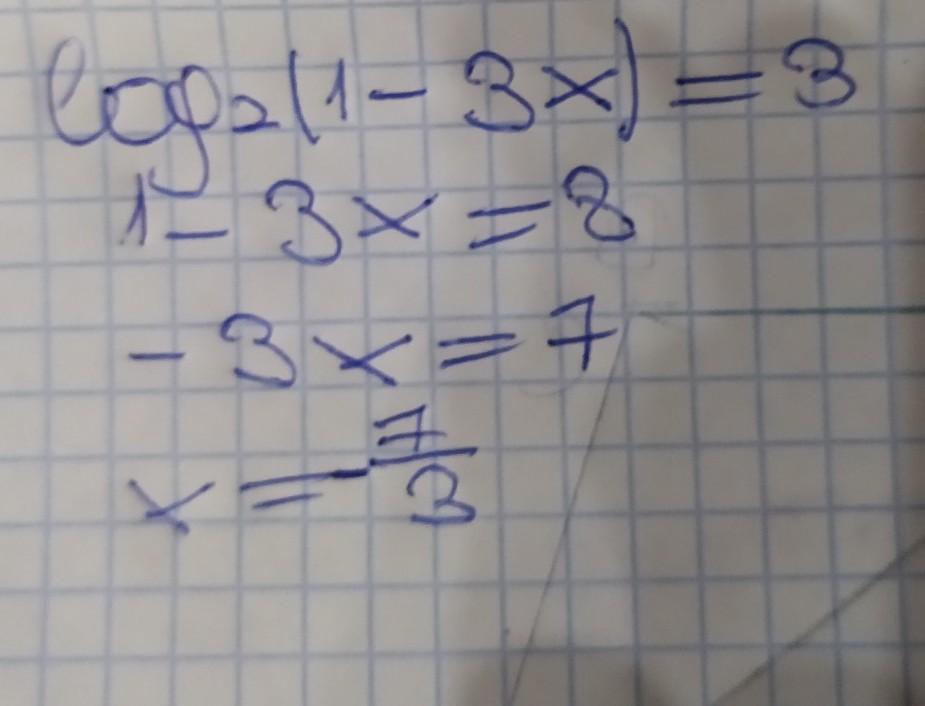 log₂(1 - 3x) = 3
1 - 3x = 8
- 3x = 7
x = - 7/3